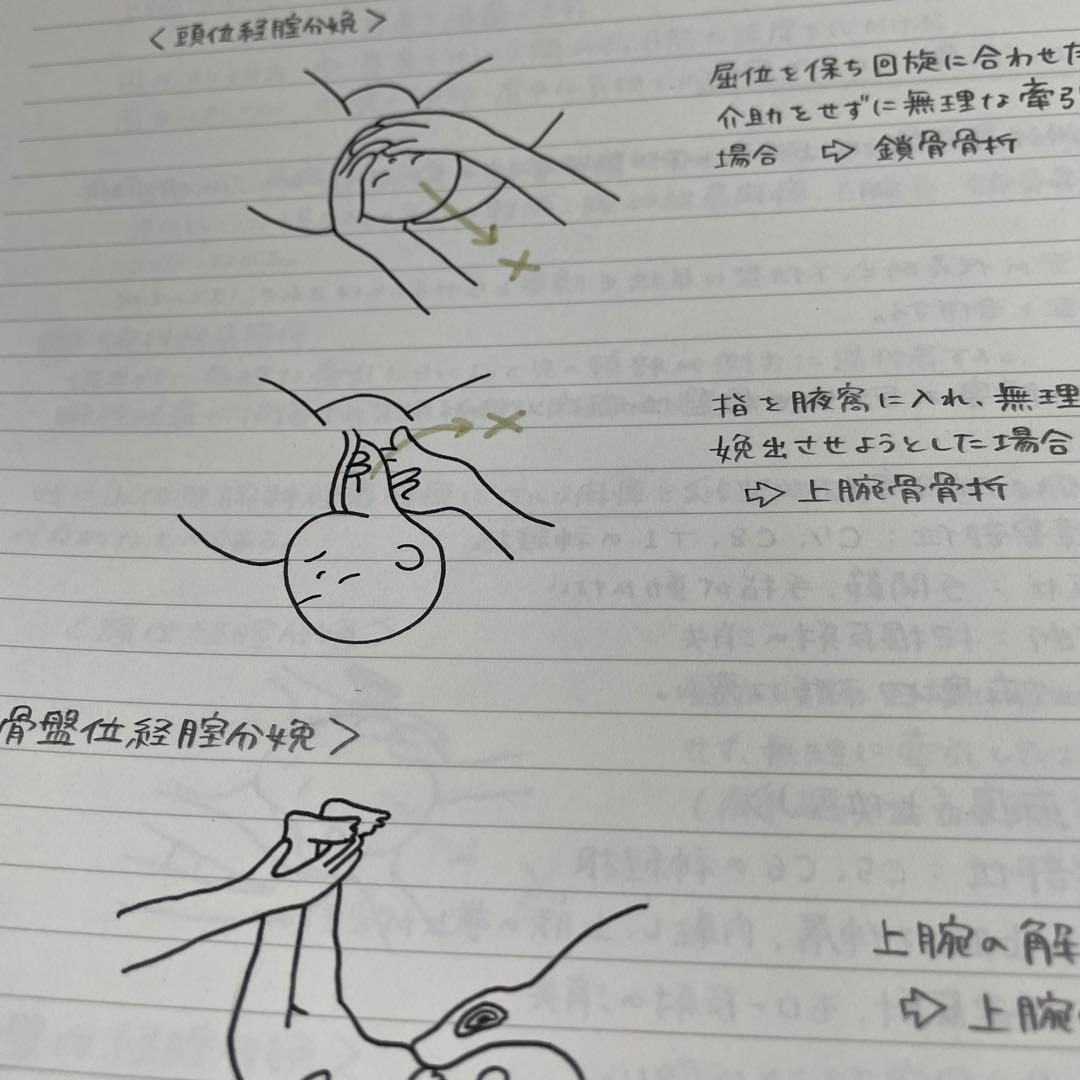 ＜頭位経腟分娩＞
屈位を保ち回旋に合わせた
介助をせずに無理な牽引
場合 ⇨ 鎖骨骨折
指を腋窩に入れ、無理
娩出させようとした場合
⇨ 上腕骨骨折
骨盤位経腟分娩＞
上腕の解
⇨ 上腕